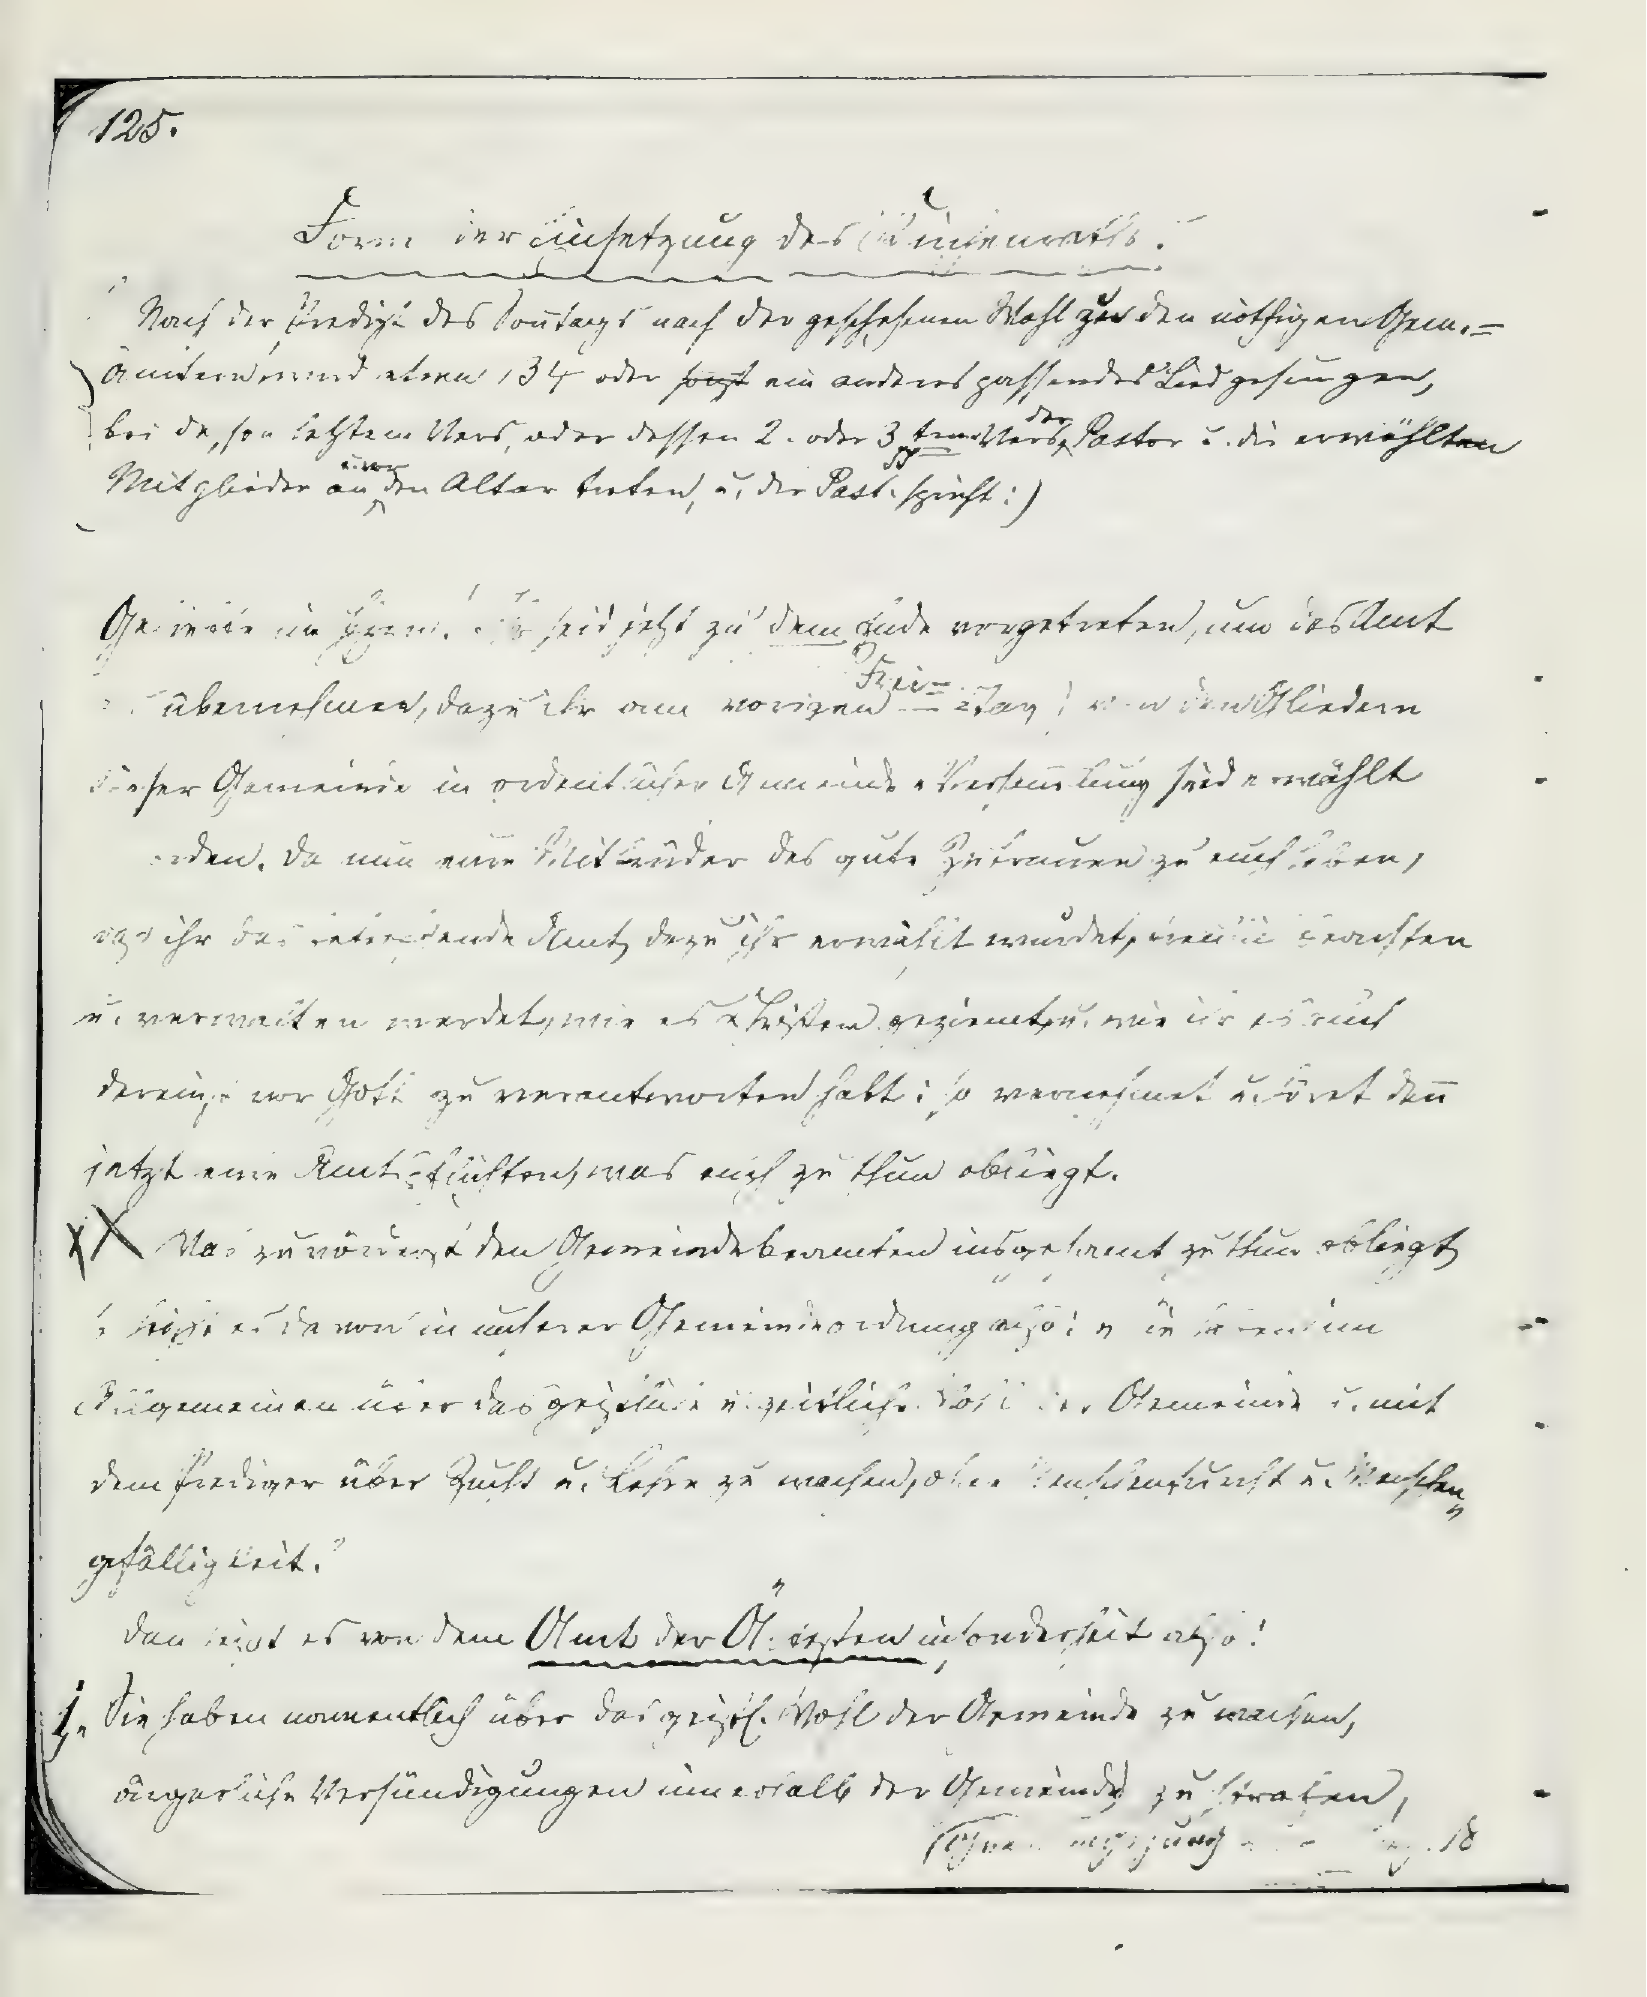 125.
Form der Einsetzung des Kirchenraths.
Nach der Predigt des Sonntags nach der geschehenen Wahl zu den nöthigen Gem.=
ämtern wird etwa 134 oder sonst ein anderes passendes Lied gesungen,
bei dessen letztem Vers, oder dessen 2. oder 3ten Vers der Pastor u. die erwählten
Mitglieder an u. vor den Altar treten, u. der Past. spricht:)
Geliebte im Herrn! Ihr seid jetzt zu dem Ende vorgetreten, um das Amt
zu übernehmen, dazu ihr am vorigen Frei=tag von den Gliedern
dieser Gemeinde in ordentlicher Gemeinde Versammlung seid erwählt
worden. Da nun eure Mitbrüder das gute Zutrauen zu euch haben,
daß ihr das betreffende Amt, dazu ihr erwählt wurdet,
u. verwalten werdet, wie es Christen geziemt, u. wie ihr es auch
dereinst vor Gott zu verantworten habt: so vernehmet u. höret deñ
jetzt eure Amtspflichten, was euch zu thun obliegt.
XX Was zuvörderst den Gemeindebeamten insgesamt zu thun obliegt,
so heißt es davon in unserer Gemeindeordnung also: „ sie haben im
Allgemeinen über das geistliche u. zeitliche Wohl der Gemeinde u. mit
dem Prediger über Zucht u. Lehre zu wachen, ohne Menschenfurcht u. Menschen„
gefälligkeit."
Dan heißt es von dem Amt der Ältesten insonderheit also:
1. Sie haben namentlich über das geistl. Wohl der Gemeinde zu wachen,
ärgerliche Versündigungen innerhalb der Gemeinde zu strafen,
18